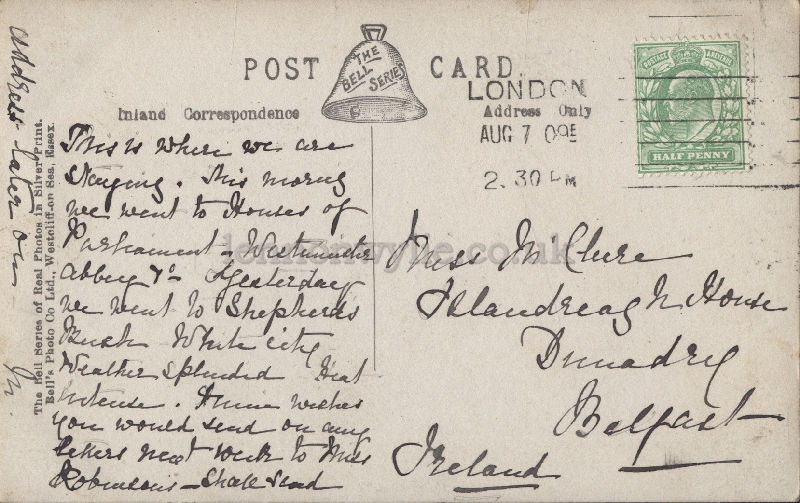 POST CARD.
THE
BELL
SERIES
Inland Correspondence
Address Only
LONDON
AUG 7 09E
2.30 PM
POSTAGE REVENUE
HALF PENNY
This is where we are
staying. This morng
we went to Houses of
Parliament - Westminster
Abbey &c Yesterday
we went to Shepherds
Bush White city
Weather splendid Heat
intense. Annie wishes
you would send on any
letters next week to Miss
Robinsons - Shall send
address later on
M.
Miss McClure
Islandreagh House
Dunadry
Belfast
Ireland
The Bell Series of Real Photos in Silver Print.
Bell's Photo Co Ltd., Westcliff-on Sea, Essex.
lennonwylie.co.uk